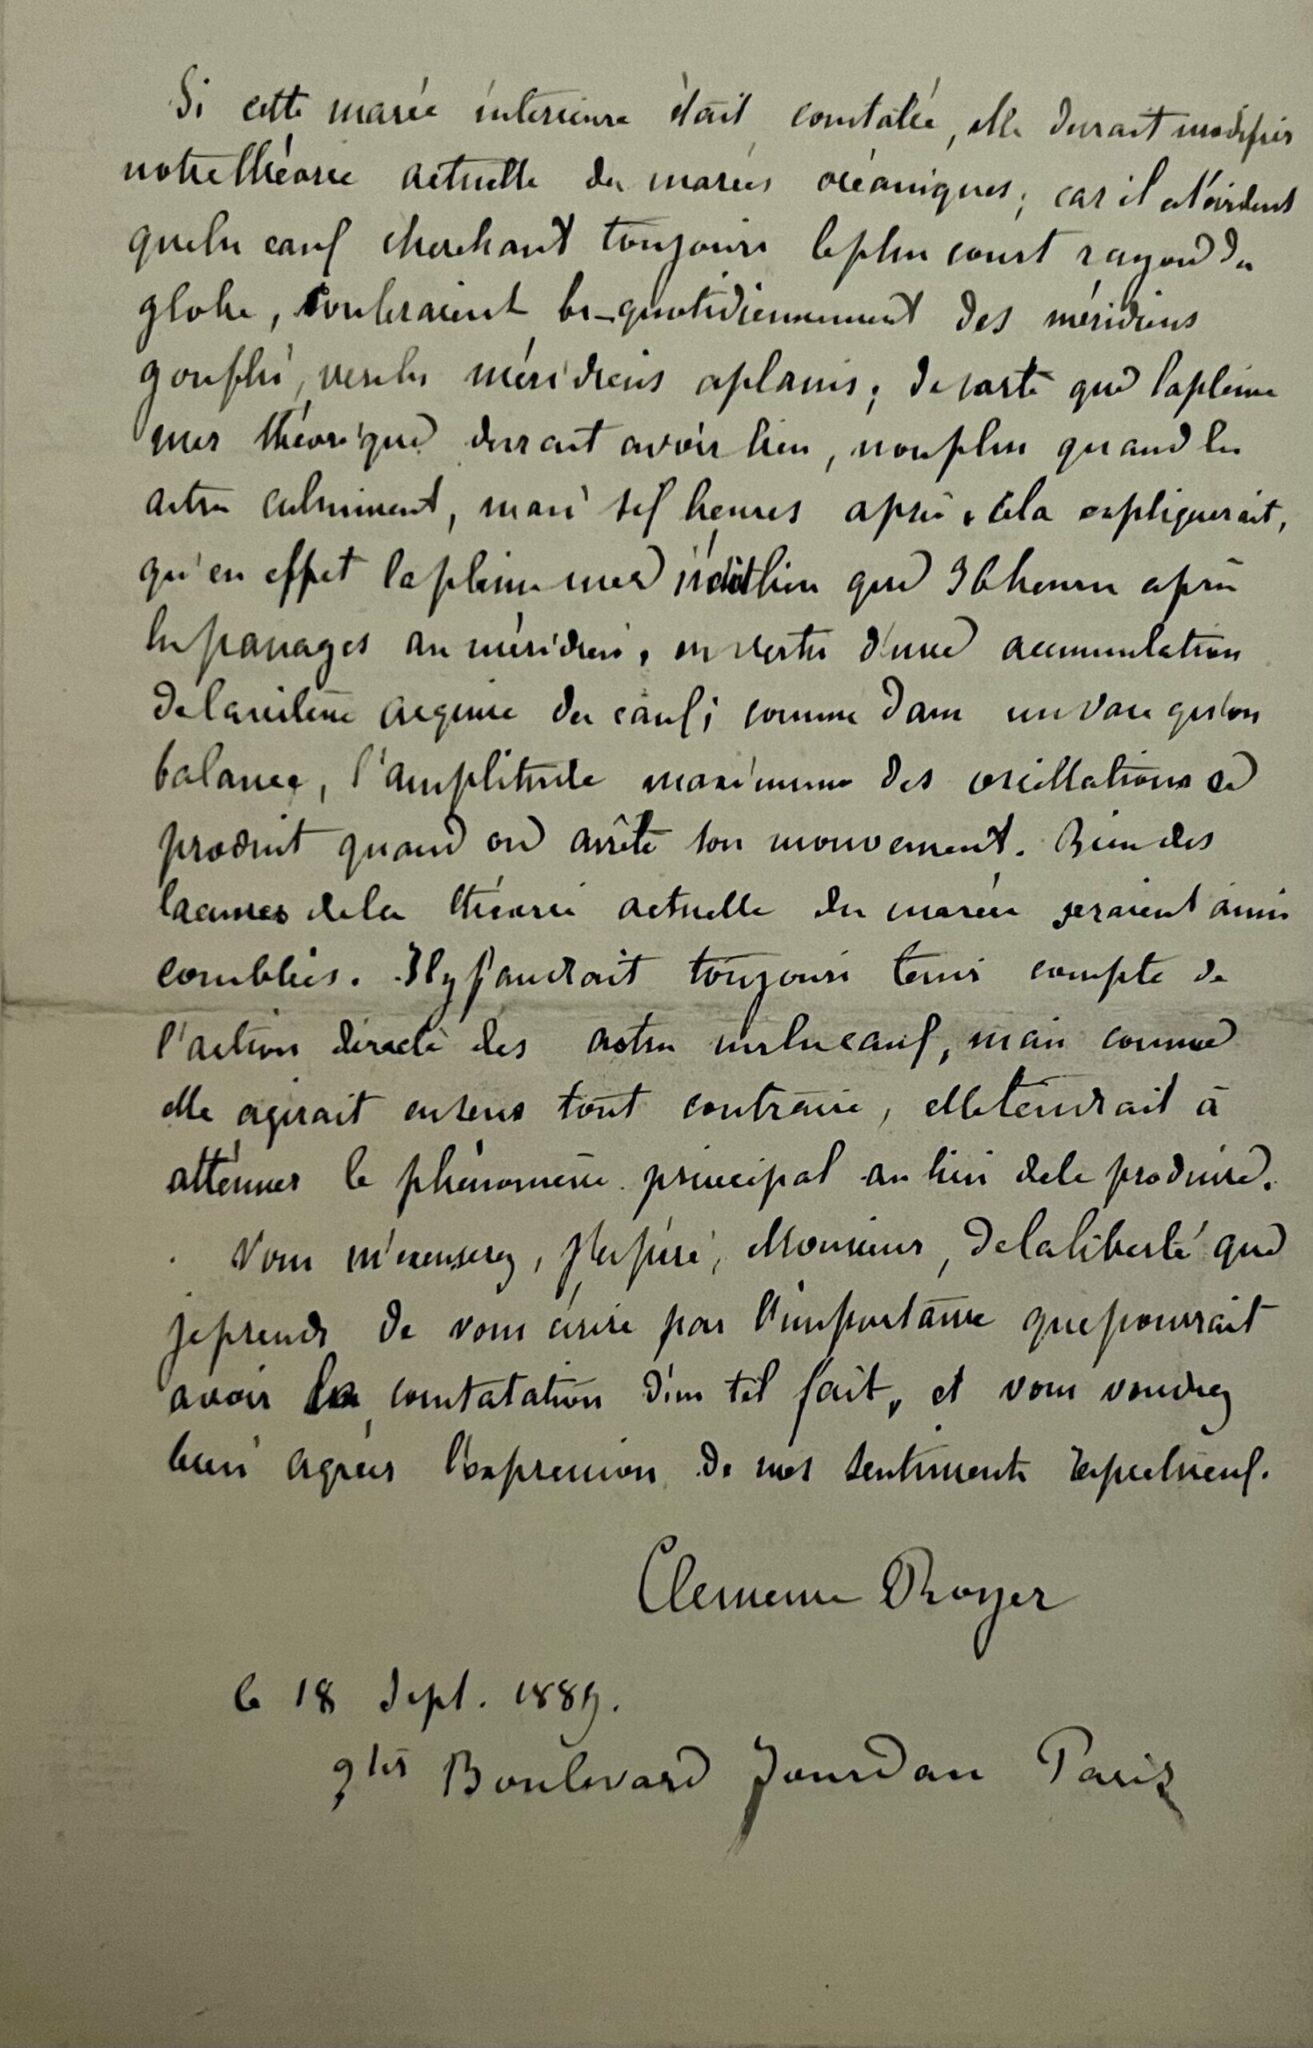 Si cette marée intérieure était constatée, elle devrait modifier
notre théorie actuelle des marées océaniques; car il est évident
que les eaux cherchant toujours le plus court rayon du
globe, couleraient bi-quotidiennement des méridiens
gonflés, vers les méridiens aplanis; de sorte que la pleine
mer théorique devrait avoir lieu, non plus quand les
astres culminent, mais six heures après. Cela expliquerait,
qu'en effet la pleine mer n'ait lieu que 36 heures après
les passages au méridien, en vertu d'une accumulation
de la vitesse acquise des eaux; comme dans un vase qu'on
balance, l'amplitude maximum des oscillations se
produit quand on arrête son mouvement. Bien des
lacunes de la théorie actuelle des marées seraient ainsi
comblées. Il y faudrait toujours tenir compte de
l'action directe des astres sur les eaux, mais comme
elle agirait en sens tout contraire, elle tendrait à
atténuer le phénomène principal au lieu de le produire.
Vous m'excuserez, j'espère, Monsieur, de la liberté que
je prends de vous écrire par l'importance que pourrait
avoir la constatation d'un tel fait, et vous voudrez
bien agréer l'expression de mes sentiments respectueux.
Clemence Royer
le 18 Sept. 1889.
9 ter Boulevard Jourdan Paris